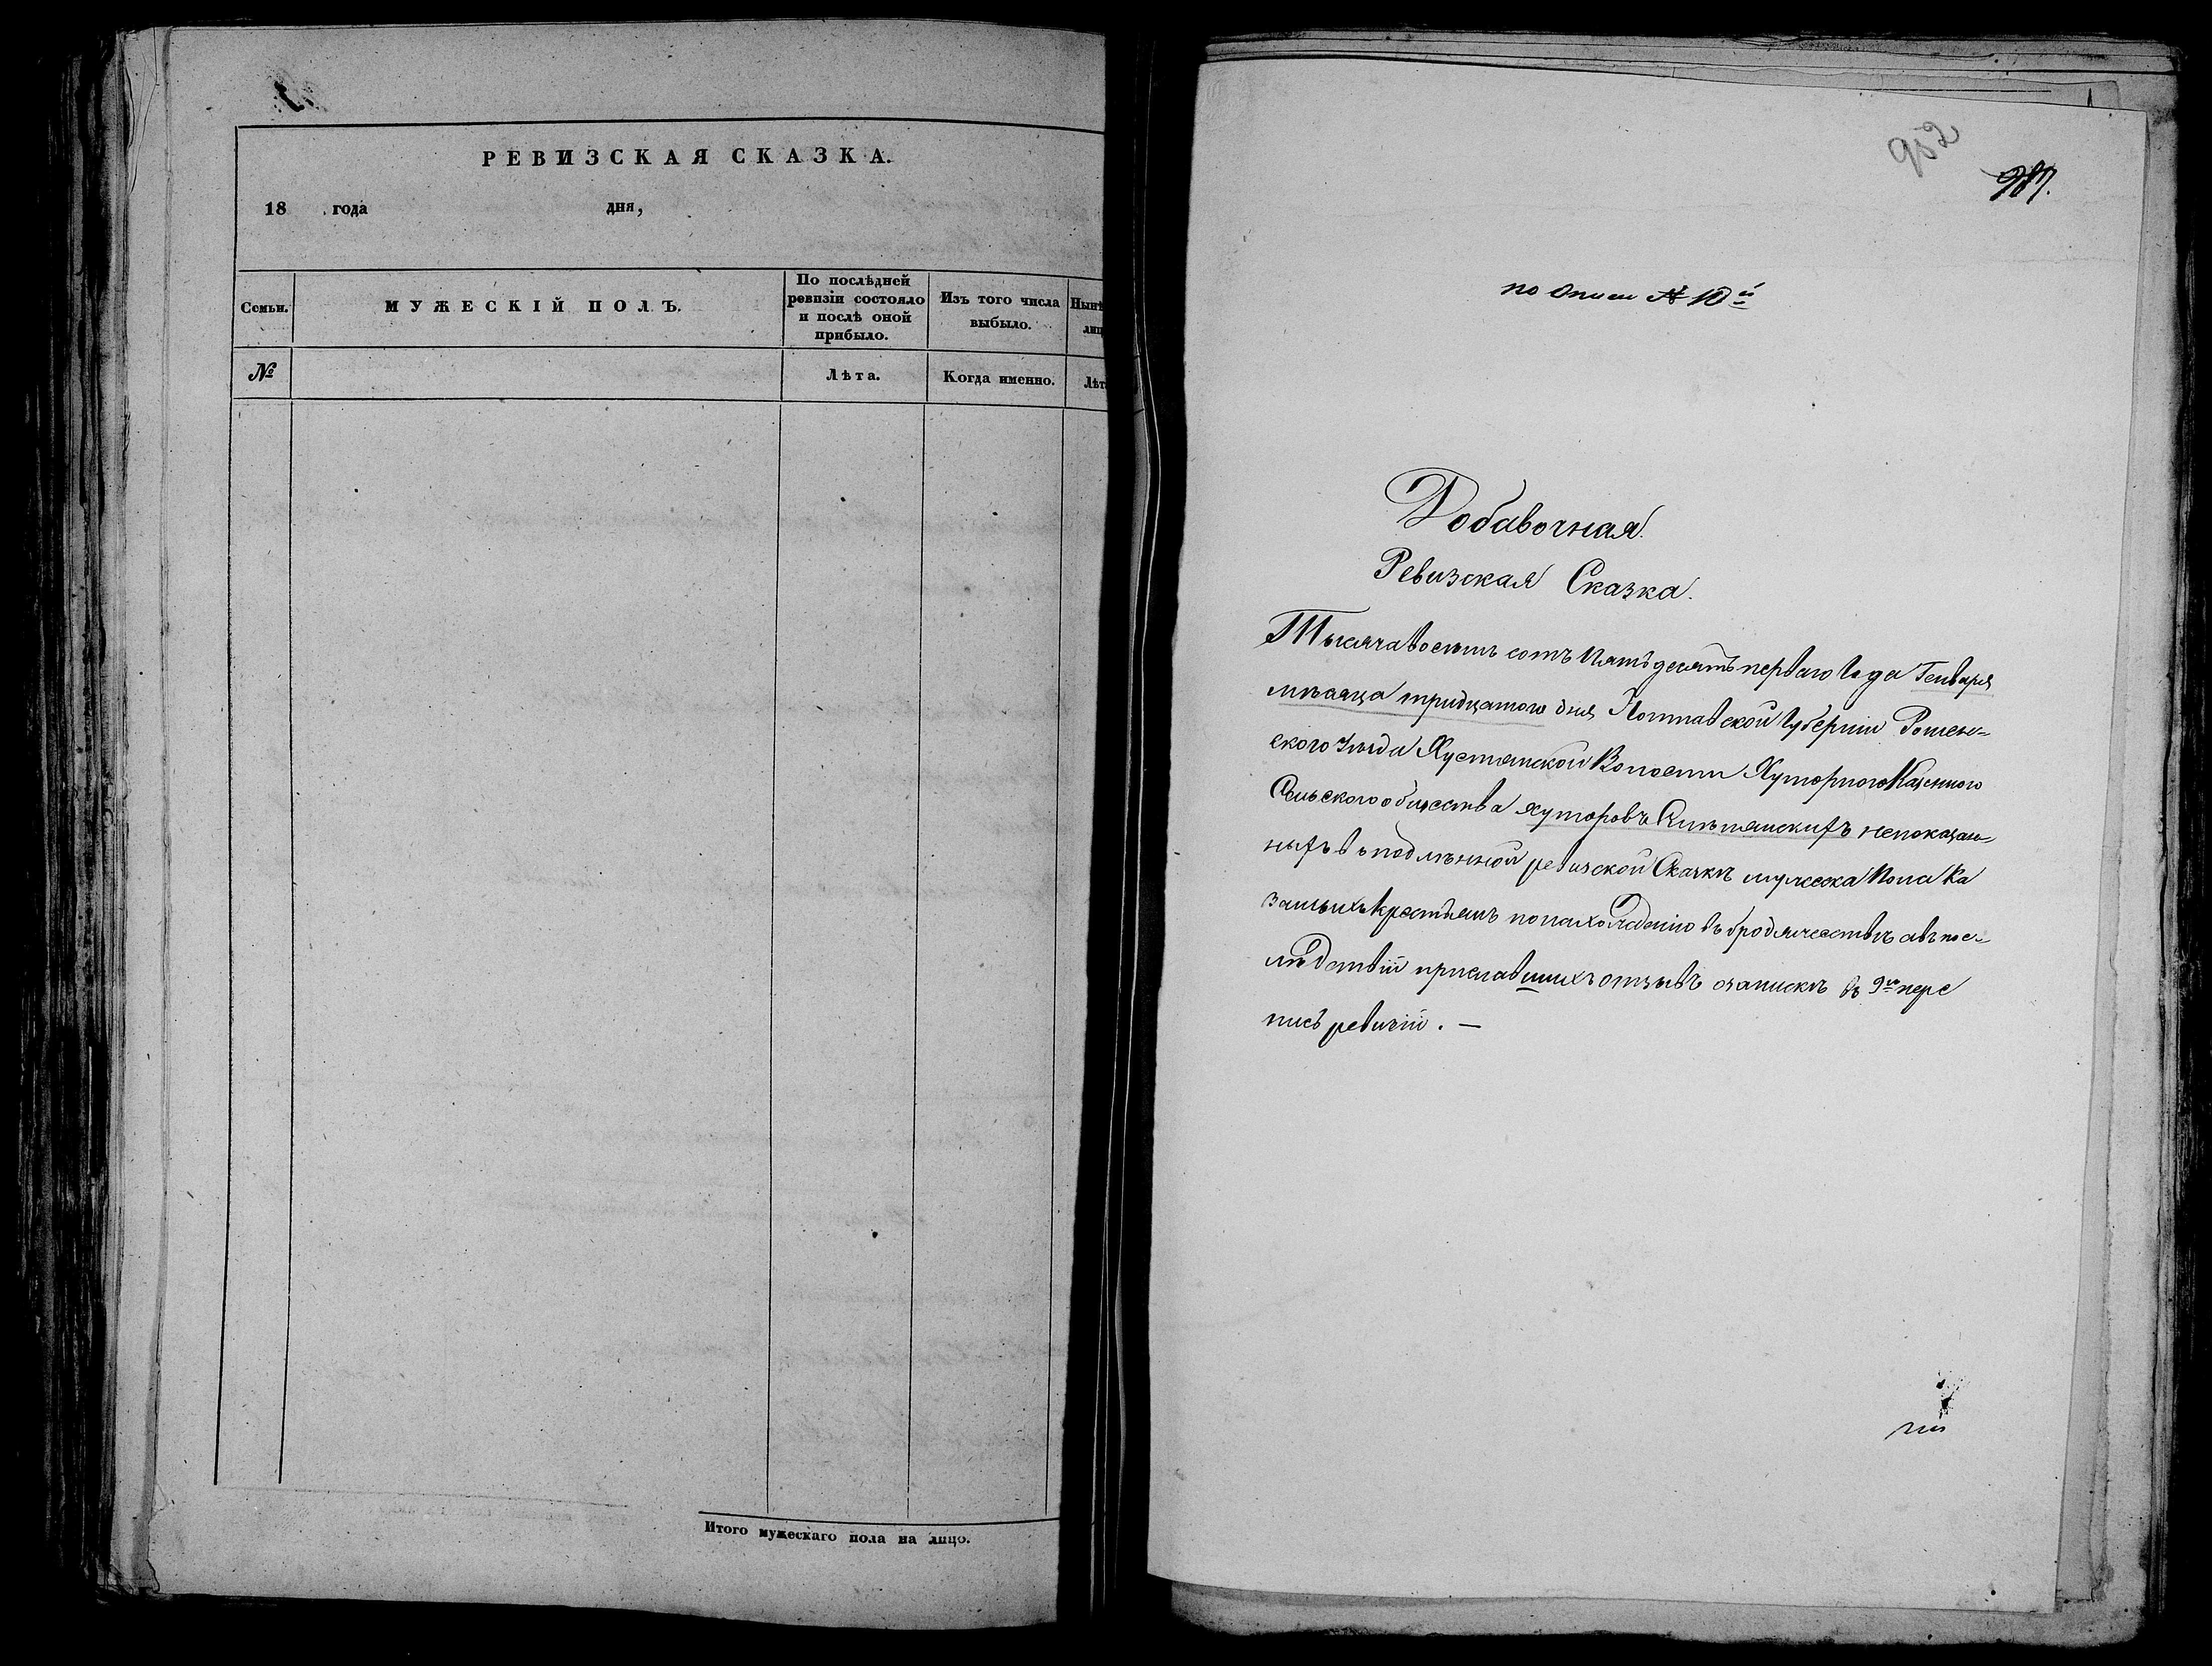 РЕВИЗСКАЯ СКАЗКА.
18 года дня,
Семьи.
МУЖЕСКІЙ ПОЛЪ.
По послѣдней
ревизіи состояло
и послѣ оной
прибыло.
Изъ того числа
выбыло.
№
Лѣта.
Когда именно.
Итого мужескаго пола на лицо.
952
987.
по Описи № 10й
Добавочная
Ревизская Сказка.
Тысяча восемь сотъ Пятьдесятъ перваго Года Генваря
мѣсяца тридцатого дня Полтавской Губерніи Ромен=
ского уѣзда Хустянской Волости Хуторного Казенного
Сельского общества хуторовъ непоказан=
ныхъ въ подлѣнной ревизской Сказкѣ мужеска Пола Ка
зенныхъ крестьянъ по нахожденію въ бродяжествѣ авъ пос=
лѣдствіи приславшихъ отзывъ озапискѣ въ 9ю пере
пись ревизіи. —